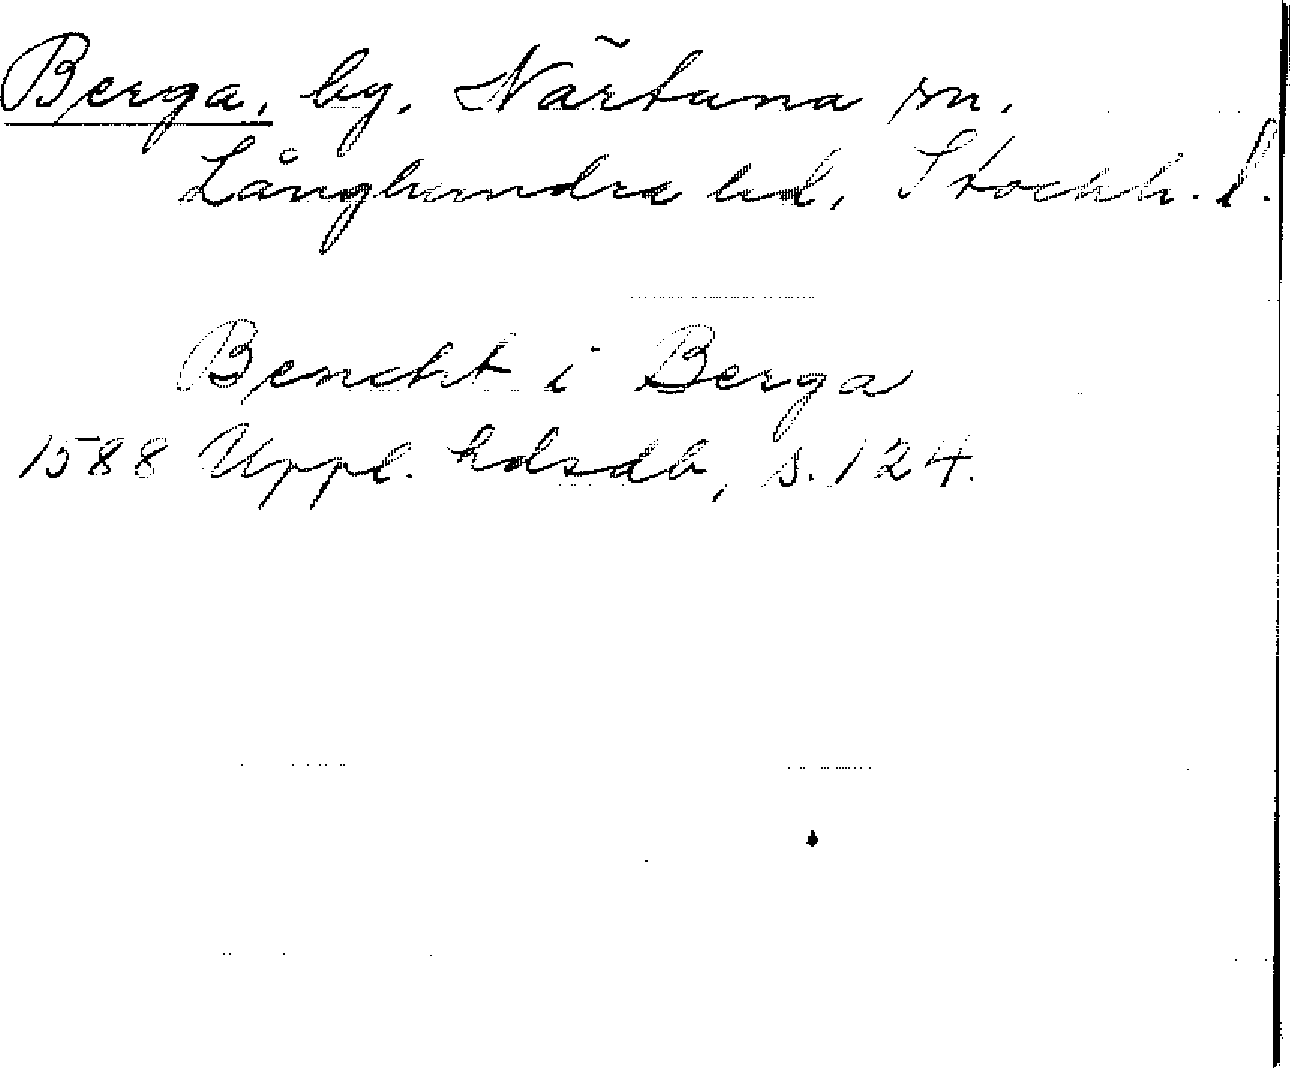 Berga, by, Närtuna sn.
Långhundra hd, Stockh. l.
Bencht i Berga
1588 Uppl. hdsdb, s. 124.